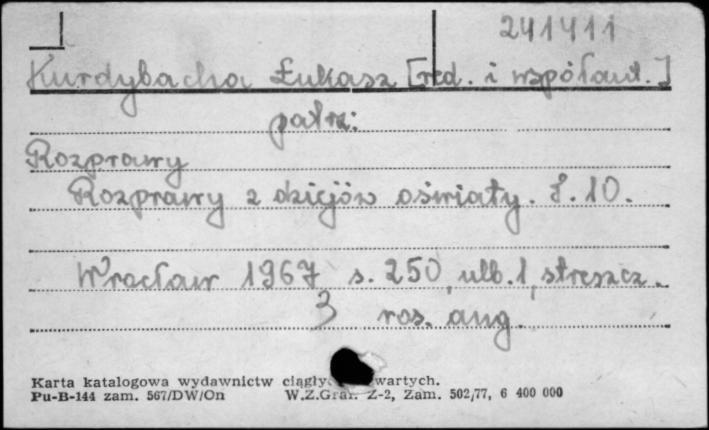 241411
Kurdybacha Łukasz [red. i współaut.]
patrz:
Rozprawy
Rozprawy z dziejów oświaty. T. 10.
Wrocław 1967, s. 250, ulb. 1, streszcz.
3 ros. ang.
Karta katalogowa wydawnictw wartych.
Pu-B-144 zam. 567/DW/On W.Z.Graf. Z-2, Zam. 502/77, 6 400 000